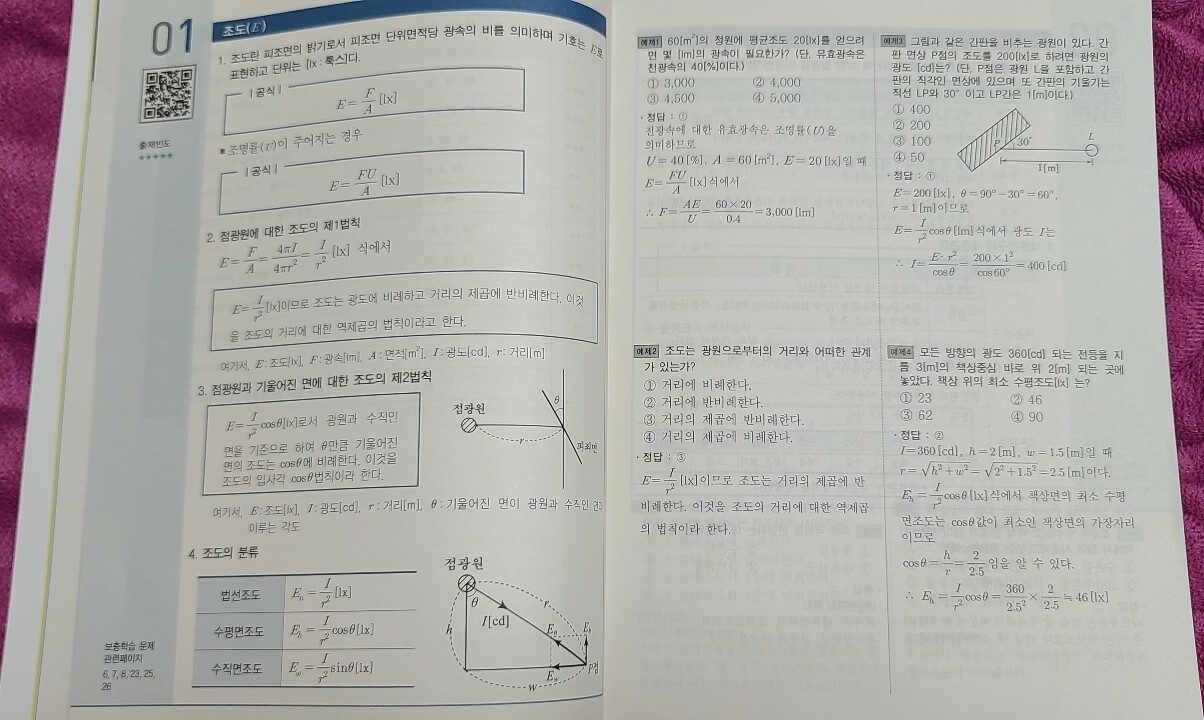 01
출제빈도
★★★★★
보충학습 문제
관련페이지
6, 7, 8, 23, 25,
26
조도(E)
1. 조도란 피조면의 밝기로서 피조면 단위면적당 광속의 비를 의미하며 기호는 E로
표현하고 단위는 [lx : 룩스]다.
| 공식 |
E = F/A [lx]
■ 조명률(U)이 주어지는 경우
| 공식 |
E = FU/A [lx]
2. 점광원에 대한 조도의 제1법칙
E = F/A = 4πI/4πr² = I/r² [lx] 식에서
E = I/r² [lx]이므로 조도는 광도에 비례하고 거리의 제곱에 반비례한다. 이것
을 조도의 거리에 대한 역제곱의 법칙이라고 한다.
여기서, E : 조도[lx], F : 광속[lm], A : 면적[m²], I : 광도[cd], r : 거리[m]
3. 점광원과 기울어진 면에 대한 조도의 제2법칙
E = I/r² cosθ[lx]로서 광원과 수직인
면을 기준으로 하여 θ만큼 기울어진
면의 조도는 cosθ에 비례한다. 이것을
조도의 입사각 cosθ법칙이라 한다.
점광원
θ
r
피조면
여기서, E : 조도[lx], I : 광도[cd], r : 거리[m], θ : 기울어진 면이 광원과 수직인 면과
이루는 각도
4. 조도의 분류
법선조도 Eₙ = I/r² [lx]
수평면조도 Eₕ = I/r² cosθ[lx]
수직면조도 E_w = I/r² sinθ[lx]
점광원
θ
r
I[cd]
h
Eₙ
Eₕ
E_w
P점
w
예제1 60[m²]의 정원에 평균조도 20[lx]를 얻으려
면 몇 [lm]의 광속이 필요한가? (단, 유효광속은
전광속의 40[%]이다.)
① 3,000 ② 4,000
③ 4,500 ④ 5,000
· 정답 : ①
전광속에 대한 유효광속은 조명률(U)을
의미하므로
U = 40 [%], A = 60 [m²], E = 20 [lx]일 때
E = FU/A [lx] 식에서
∴ F = AE/U = 60×20/0.4 = 3,000 [lm]
예제2 조도는 광원으로부터의 거리와 어떠한 관계
가 있는가?
① 거리에 비례한다.
② 거리에 반비례한다.
③ 거리의 제곱에 반비례한다.
④ 거리의 제곱에 비례한다.
· 정답 : ③
E = I/r² [lx]이므로 조도는 거리의 제곱에 반
비례한다. 이것을 조도의 거리에 대한 역제곱
의 법칙이라 한다.
예제3 그림과 같은 간판을 비추는 광원이 있다. 간
판 면상 P점의 조도를 200[lx]로 하려면 광원의
광도 [cd]는? (단, P점은 광원 L을 포함하고 간
판의 직각인 면상에 있으며 또 간판의 기울기는
직선 LP와 30° 이고 LP간은 1[m]이다.)
① 400
② 200
③ 100
④ 50
P
30°
L
1[m]
· 정답 : ①
E = 200 [lx], θ = 90° − 30° = 60°,
r = 1 [m]이므로
E = I/r² cosθ [lm] 식에서 광도 I는
∴ I = E·r²/cosθ = 200×1²/cos60° = 400 [cd]
예제4 모든 방향의 광도 360[cd] 되는 전등을 지
름 3[m]의 책상중심 바로 위 2[m] 되는 곳에
놓았다. 책상 위의 최소 수평조도[lx] 는?
① 23 ② 46
③ 62 ④ 90
· 정답 : ②
I = 360 [cd], h = 2 [m], w = 1.5 [m]일 때
r = √(h² + w²) = √(2² + 1.5²) = 2.5 [m]이다.
Eₕ = I/r² cosθ [lx] 식에서 책상면의 최소 수평
면조도는 cosθ값이 최소인 책상면의 가장자리
이므로
cosθ = h/r = 2/2.5 임을 알 수 있다.
∴ Eₕ = I/r² cosθ = 360/2.5² × 2/2.5 ≒ 46 [lx]